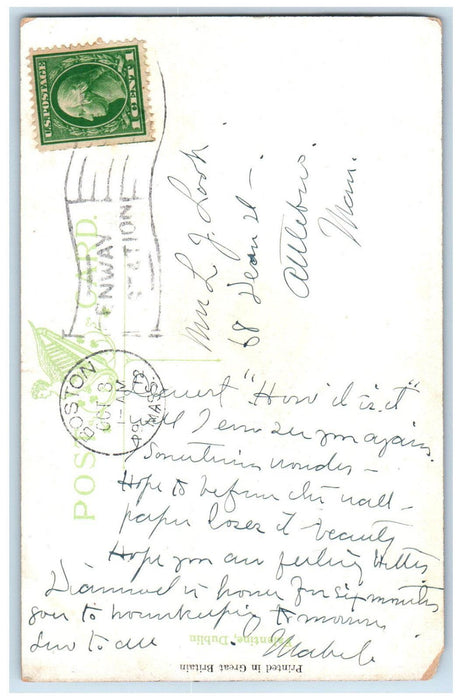 U.S. POSTAGE
1 CENT 1
FENWAY
STATION
BOSTON
OCT 8
1-AM
1912
MASS.
POST CARD.
Mrs L. J. Look
68 Dean St -
Attleboro
Mass.
"How it is, it"
will I ever see you again.
Sometimes wonder -
Hope to before the wall -
paper loses it beauty
Hope you are feeling better
is home for six months
goes to housekeeping tomorrow
love to all Mabel
Valentine, Dublin
Printed in Great Britain